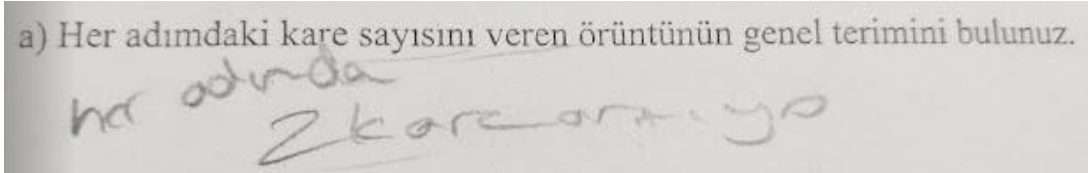 a) Her adımdaki kare sayısını veren örüntünün genel terimini bulunuz.
her adımda
2 kare artıyo